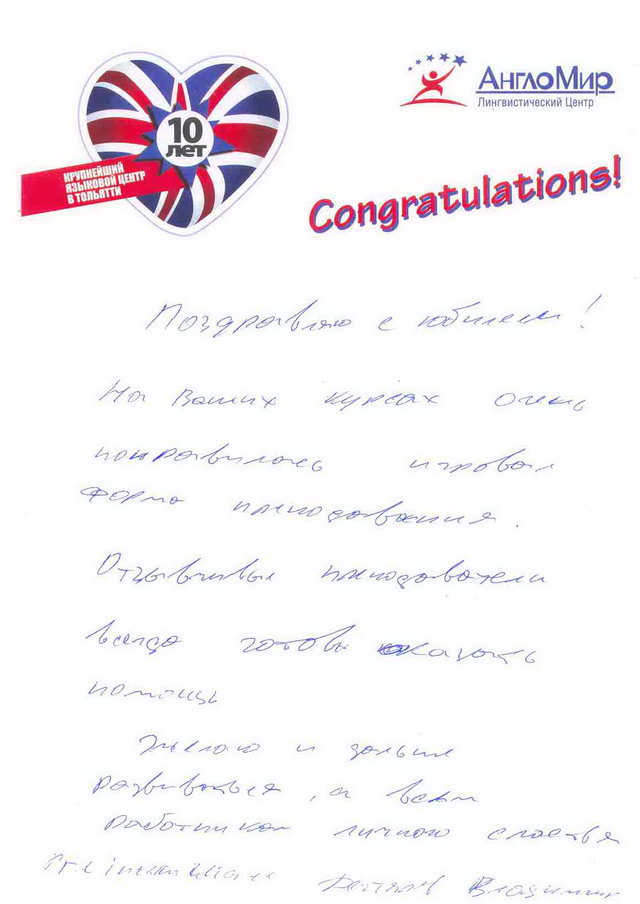 10
лет
КРУПНЕЙШИЙ
ЯЗЫКОВОЙ ЦЕНТР
В ТОЛЬЯТТИ
АнглоМир
Лингвистический Центр
Congratulations!
Поздравляю с юбилеем!
На Ваших курсах очень
понравилась игровая
форма преподавания.
Отзывчивые преподаватели
всегда готовы оказать
помощь
Желаю и дальше
развиваться, а всем
работникам личного счастья
Pre intermediate Владимир